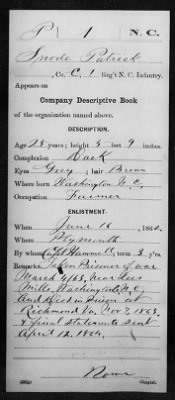 P 1 N. C.
Snode Patrick
, Co. C, 1 Reg't N. C. Infantry.
Appears on
Company Descriptive Book
of the organization named above.
DESCRIPTION.
Age 28 years; height 5 feet 9 inches.
Complexion Dark
Eyes Grey; hair Brown
Where born Washington N. C.
Occupation Farmer
ENLISTMENT.
When June 16, 1862.
Where Plymouth
By whom Capt Hammell; term 3 y'rs.
Remarks: Taken Prisoner of war
March 4/63, near
Mills, Washington Co N. C.
And Died in Prison at
Richmond Va. Nov 7, 1863,
& final Statements Sent
April 12, 1864.
Copyist.